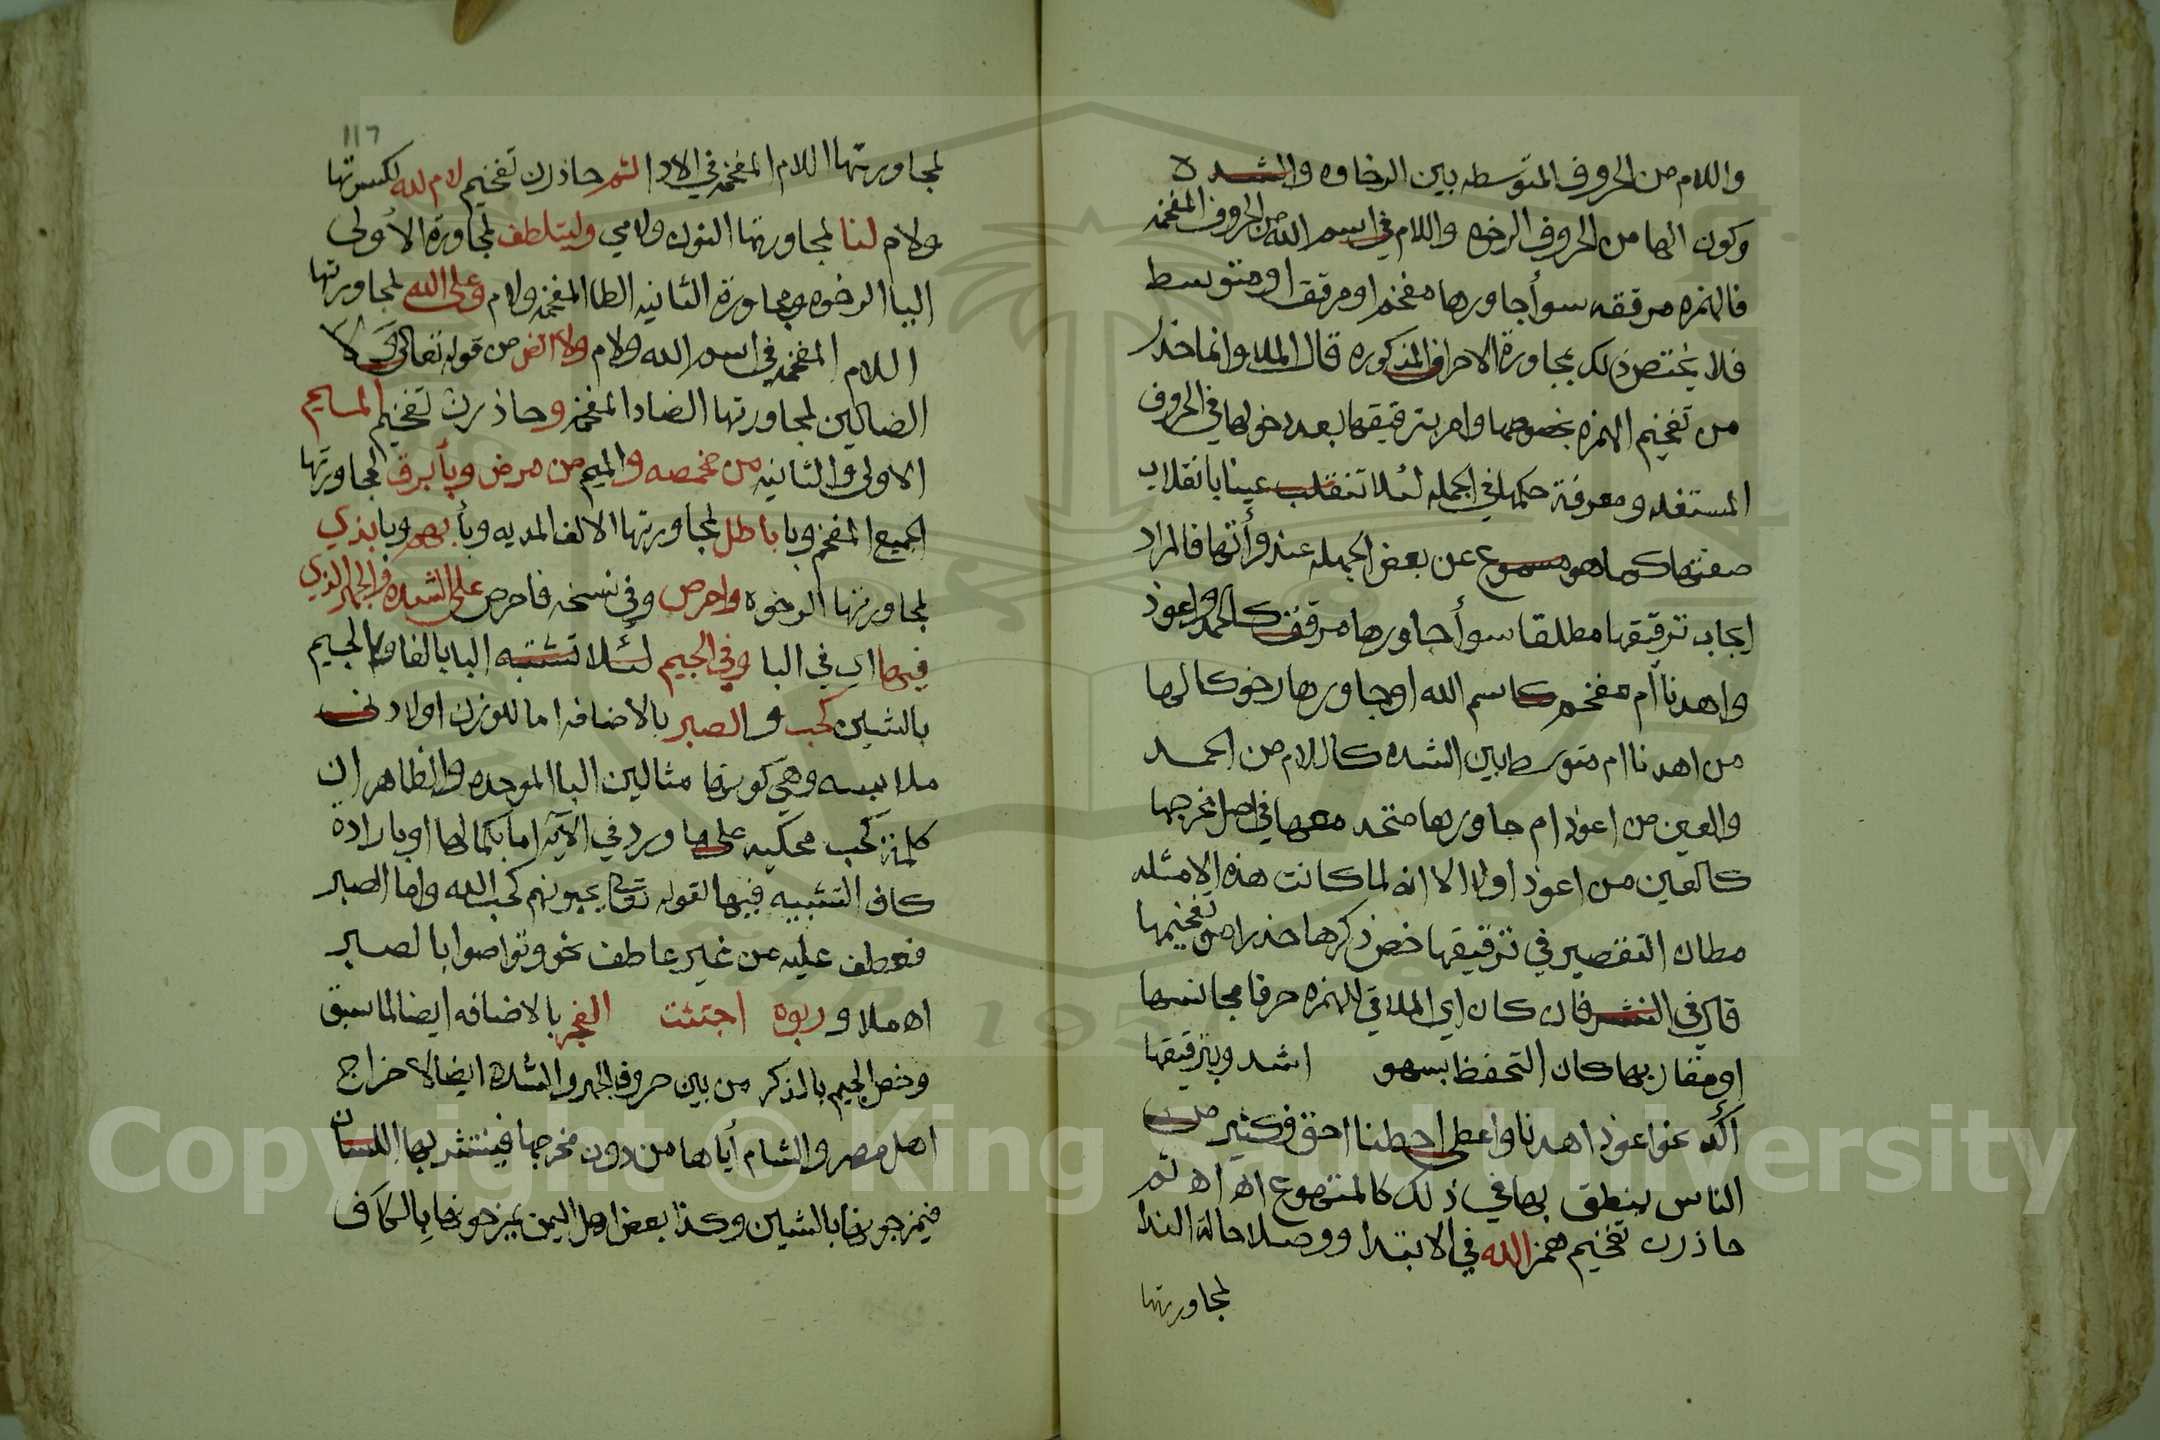 واللام من الحروف المتوسطه بين الرخاوه والشده
وكون الها من الحروف الرخوه واللام في اسم الله من الحروف المفخمه
فالهمزه مرققه سوأ جاورها مفخم او مرقق او متوسط
فلا يختص ذلك بمجاورة الاحرف المذكوره قال الملا وانما حذر
من تفخيم الهمزه بخصوصها وامر بترقيقها بعد دخولها في الحروف
المستفله ومعرفة حكمها في الجمله لئلا تنقلب عينا بانقلاب
صفتها كما هو مسموع عن بعض الجمله عند وأتها فالمراد
ايجاب ترقيقها مطلقا سوأ جاورها مرقق كالحمد واعوذ
واهدنا أم مفخم كاسم الله او جاورها رخو كالها
من اهدنا ام متوسط بين الشده كاللام من الحمد
والعين من اعوذ ام جاورها متحد معها في اصل مخرجها
كالعين من اعوذ اولا الا انه لما كانت هذه الامثله
مظان التقصير في ترقيقها خص ذكرها حذرا من تفخيمها
قال في النشر فان كان اي الملاقي للهمزه حرفا مجانسها
او مقاربها كان التحفظ بسهو اشد وبترقيقها
أكد نحو اعوذ اهدنا واعطى احطنا احق فكثير من
الناس ينطق بها في ذلك كالمتهوع اه اه ثم
حاذرن تفخيم همز الله في الابتدا ووصلا حالة الندا
لمجاورتها
١١٦
لمجاورتها اللام المفخمه في الادا ثم حاذرن تفخيم لام لله لكسرتها
ولام لنا لمجاورتها النون ولامي وليتلطف لمجاورة الأولى
اليا الرخوه ومجاورة الثانيه الطا المفخمه ولام وعلى الله لمجاورتها
اللام المفخمه في اسم الله ولام ولا الض من قوله تعالى ولا
الضالين لمجاورتها الضاد المفخمه وحاذرن تفخيم الميم
الاولى والثانيه من مخمصه والميم من مرض وبأ برق لمجاورتها
الجميع المفخم وبا باطل لمجاورتها الالف المديه وبأ بهم وبا بذي
لمجاورتها الرخوه واحرص وفي نسخه فاحرص على الشده والجهر الذي
فيها اي في البا وفي الجيم لئلا تشتبه البا بالفا والجيم
بالشين كحب والصبر بالاضافه اما للوزن او لادنى
ملابسه وهي كونها مثالين البا الموحده والظاهر ان
كلمة كحب محكيه على ما ورد في الآيه اما بكمالها او بارادة
كاف التشبيه فيها لقوله تعالى يحبونهم كحب الله واما الصبر
فعطف عليه من غير عاطف نحو وتواصوا بالصبر
اه ملا و ربوه اجتثت الفجر بالاضافه ايضا لما سبق
وخص الجيم بالذكر من بين حروف الجهر والشده ايضا لاخراج
اهل مصر والشام أياها من دون مخرجها فينتشر بها اللسان
فيمزجونها بالشين وكذا بعض اهل اليمن يمزجونها بالكاف
Copyright © King University